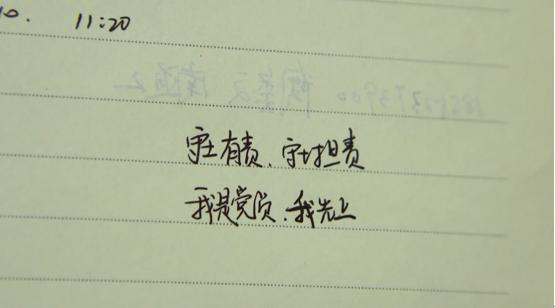 10. 11:20
守土有责、守土担责
我是党员、我先上